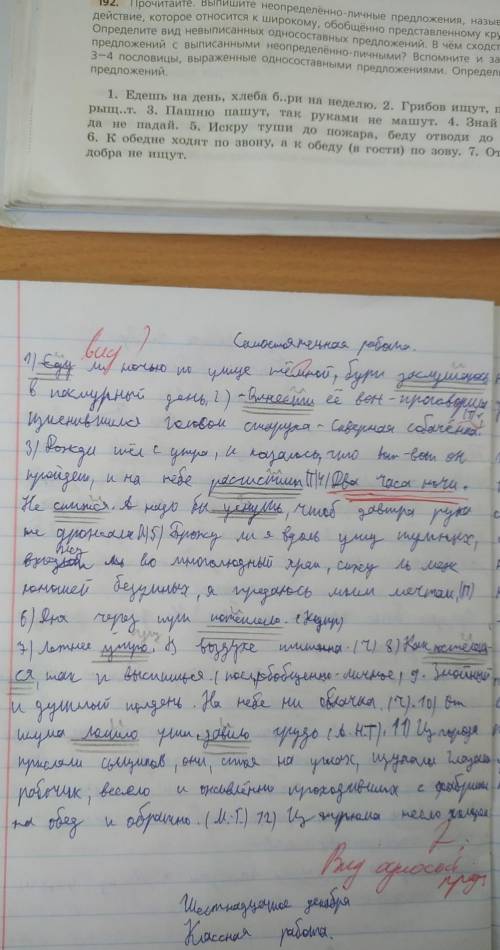 192. Прочитайте. Выпишите неопределённо-личные предложения, назыв
действие, которое относится к широкому, обобщённо представленному кру
Определите вид невыписанных односоставных предложений. В чём сходст
предложений с выписанными неопределённо-личными? Вспомните и за
3—4 пословицы, выраженные односоставными предложениями. Определ
предложений.
1. Едешь на день, хлеба б..ри на неделю. 2. Грибов ищут,
рыщ..т. 3. Пашню пашут, так руками не машут. 4. Знай
да не падай. 5. Искру туши до пожара, беду отводи до
6. К обедне ходят по звону, а к обеду (в гости) по зову. 7. От
добра не ищут.
вид?
Самостоятельная работа.
1) Еду ли ночью по улице тёмной, бури заслушаюсь
в пасмурный день, 2) - Вынести её вон - проговорила
изменившимся голосом старуха -
3) Дождь шёл с утра, и казалось, что вот-вот он
пройдет, и на небе расчистит (П) 4) Два часа ночи.
Не спится. А надо бы уснуть, чтоб завтра рука
не дрожала 5) Брожу ли я вдоль улиц шумных,
вхожу ль во многолюдный храм, сижу ль меж
юношей безумных, я предаюсь моим мечтам, (П)
6) Дня через три потеплело.
7) Летнее утро. В воздухе тишина. (Ч) 8) Как
ся, так и выспишься. 9. Знойный
и душный полдень. На небе ни облачка. (Ч). 10) От
шума ломило уши, давило грудь (А.Н.Т). 11) Из города
прислали сыщиков, они, стоя на углах, щупали глазами
рабочих, весело и оживлённо проходивших с фабрики
на обед и обратно. (М.Г.) 12) Из трюма несло
Вид односост.
пред.
Шестнадцатое декабря
Классная работа.